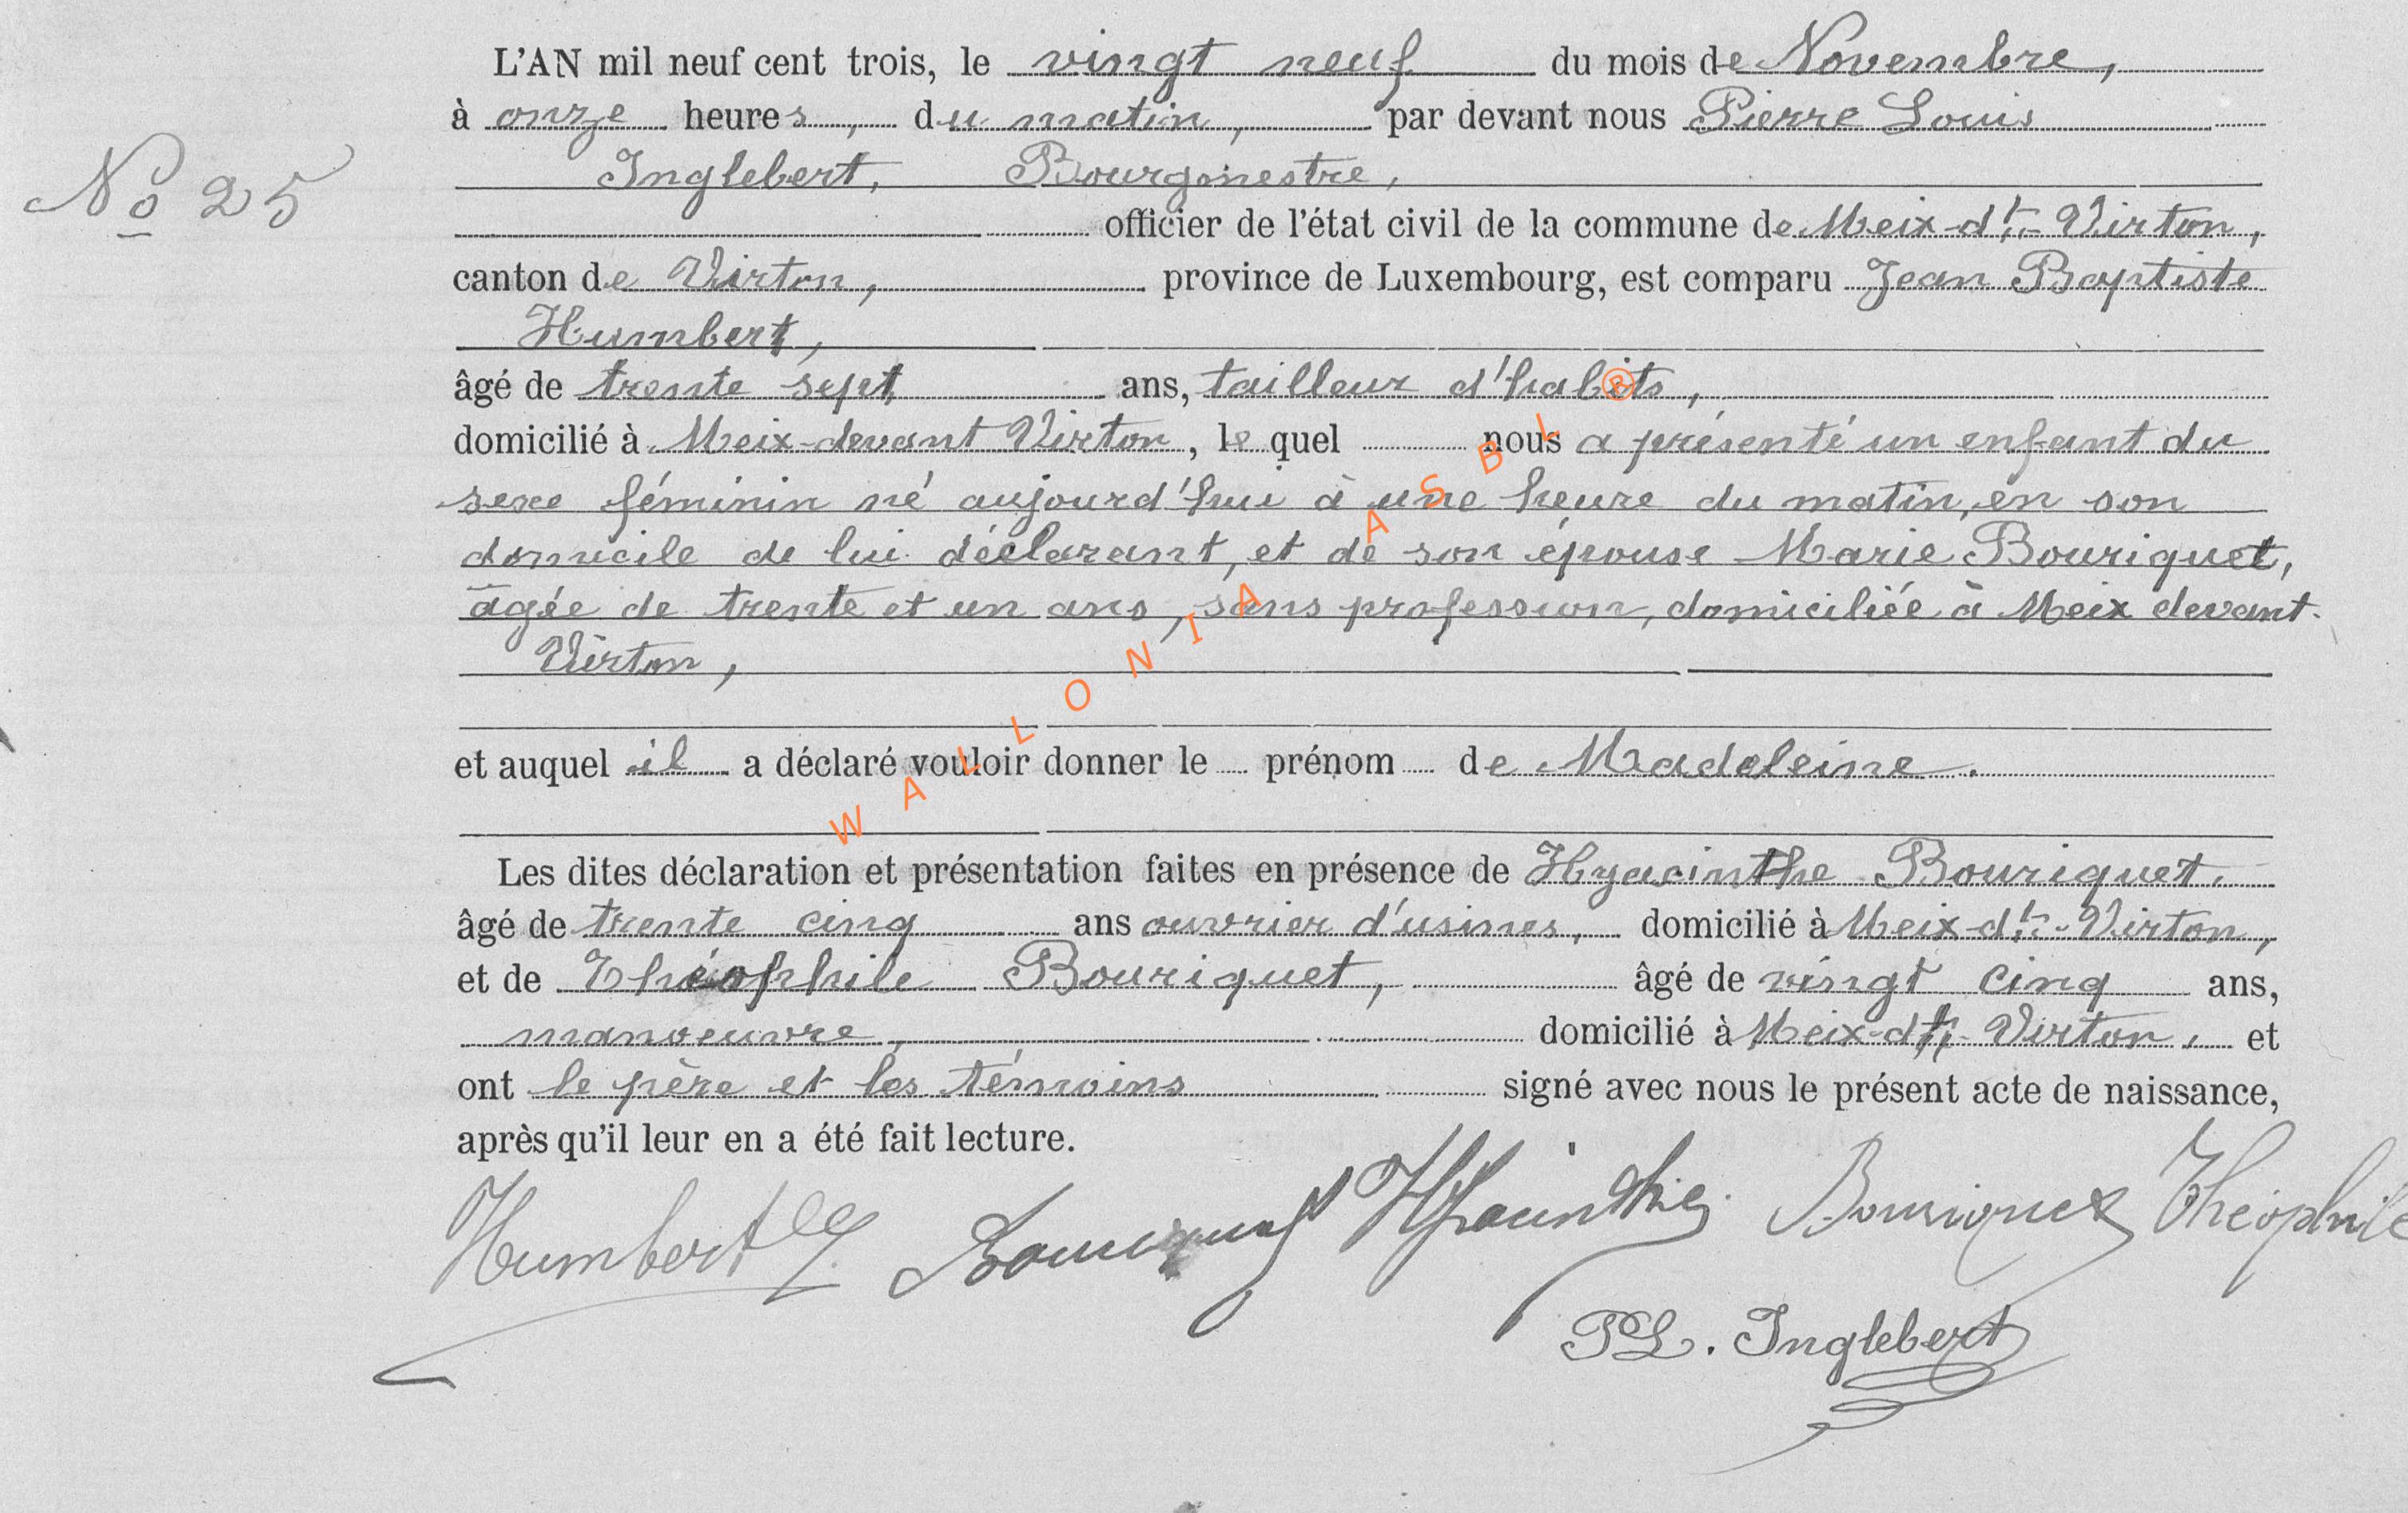 L'AN mil neuf cent trois, le vingt neuf du mois de Novembre,
à onze heures, du matin, par devant nous Pierre Louis
Inglebert, Bourgmestre,
N° 25
officier de l'état civil de la commune de Meix-dt-Virton,
canton de Virton, province de Luxembourg, est comparu Jean Baptiste
Humbert,
âgé de trente sept ans, tailleur d'habits,
domicilié à Meix-devant Virton, le quel nous a présenté un enfant du
sexe féminin né aujourd'hui à une heure du matin, en son
domicile de lui déclarant, et de son épouse Marie Bouriquet,
âgée de trente et un ans, sans profession, domiciliée à Meix devant-
Virton,
et auquel il a déclaré vouloir donner le prénom de Madeleine.
Les dites déclaration et présentation faites en présence de Hyacinthe Bouriquet.
âgé de trente cinq ans ouvrier d'usines, domicilié à Meix-dt-Virton,
et de Théophile Bouriquet, âgé de vingt cinq ans,
manoeuvre, domicilié à Meix-dt-Virton, et
ont le père et les témoins signé avec nous le présent acte de naissance,
après qu'il leur en a été fait lecture.
Humbert Bouriquet Hyacinthe Bouriquet Théophile
PL. Inglebert
WALLONIA ASBL ®